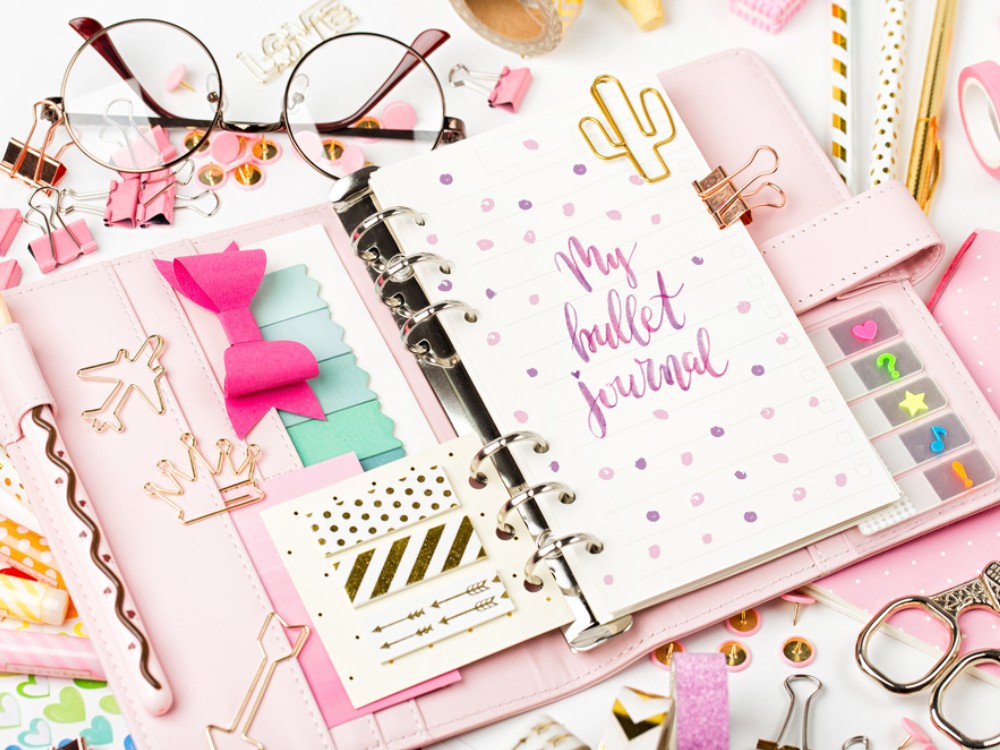 LOVE
My
bullet
journal